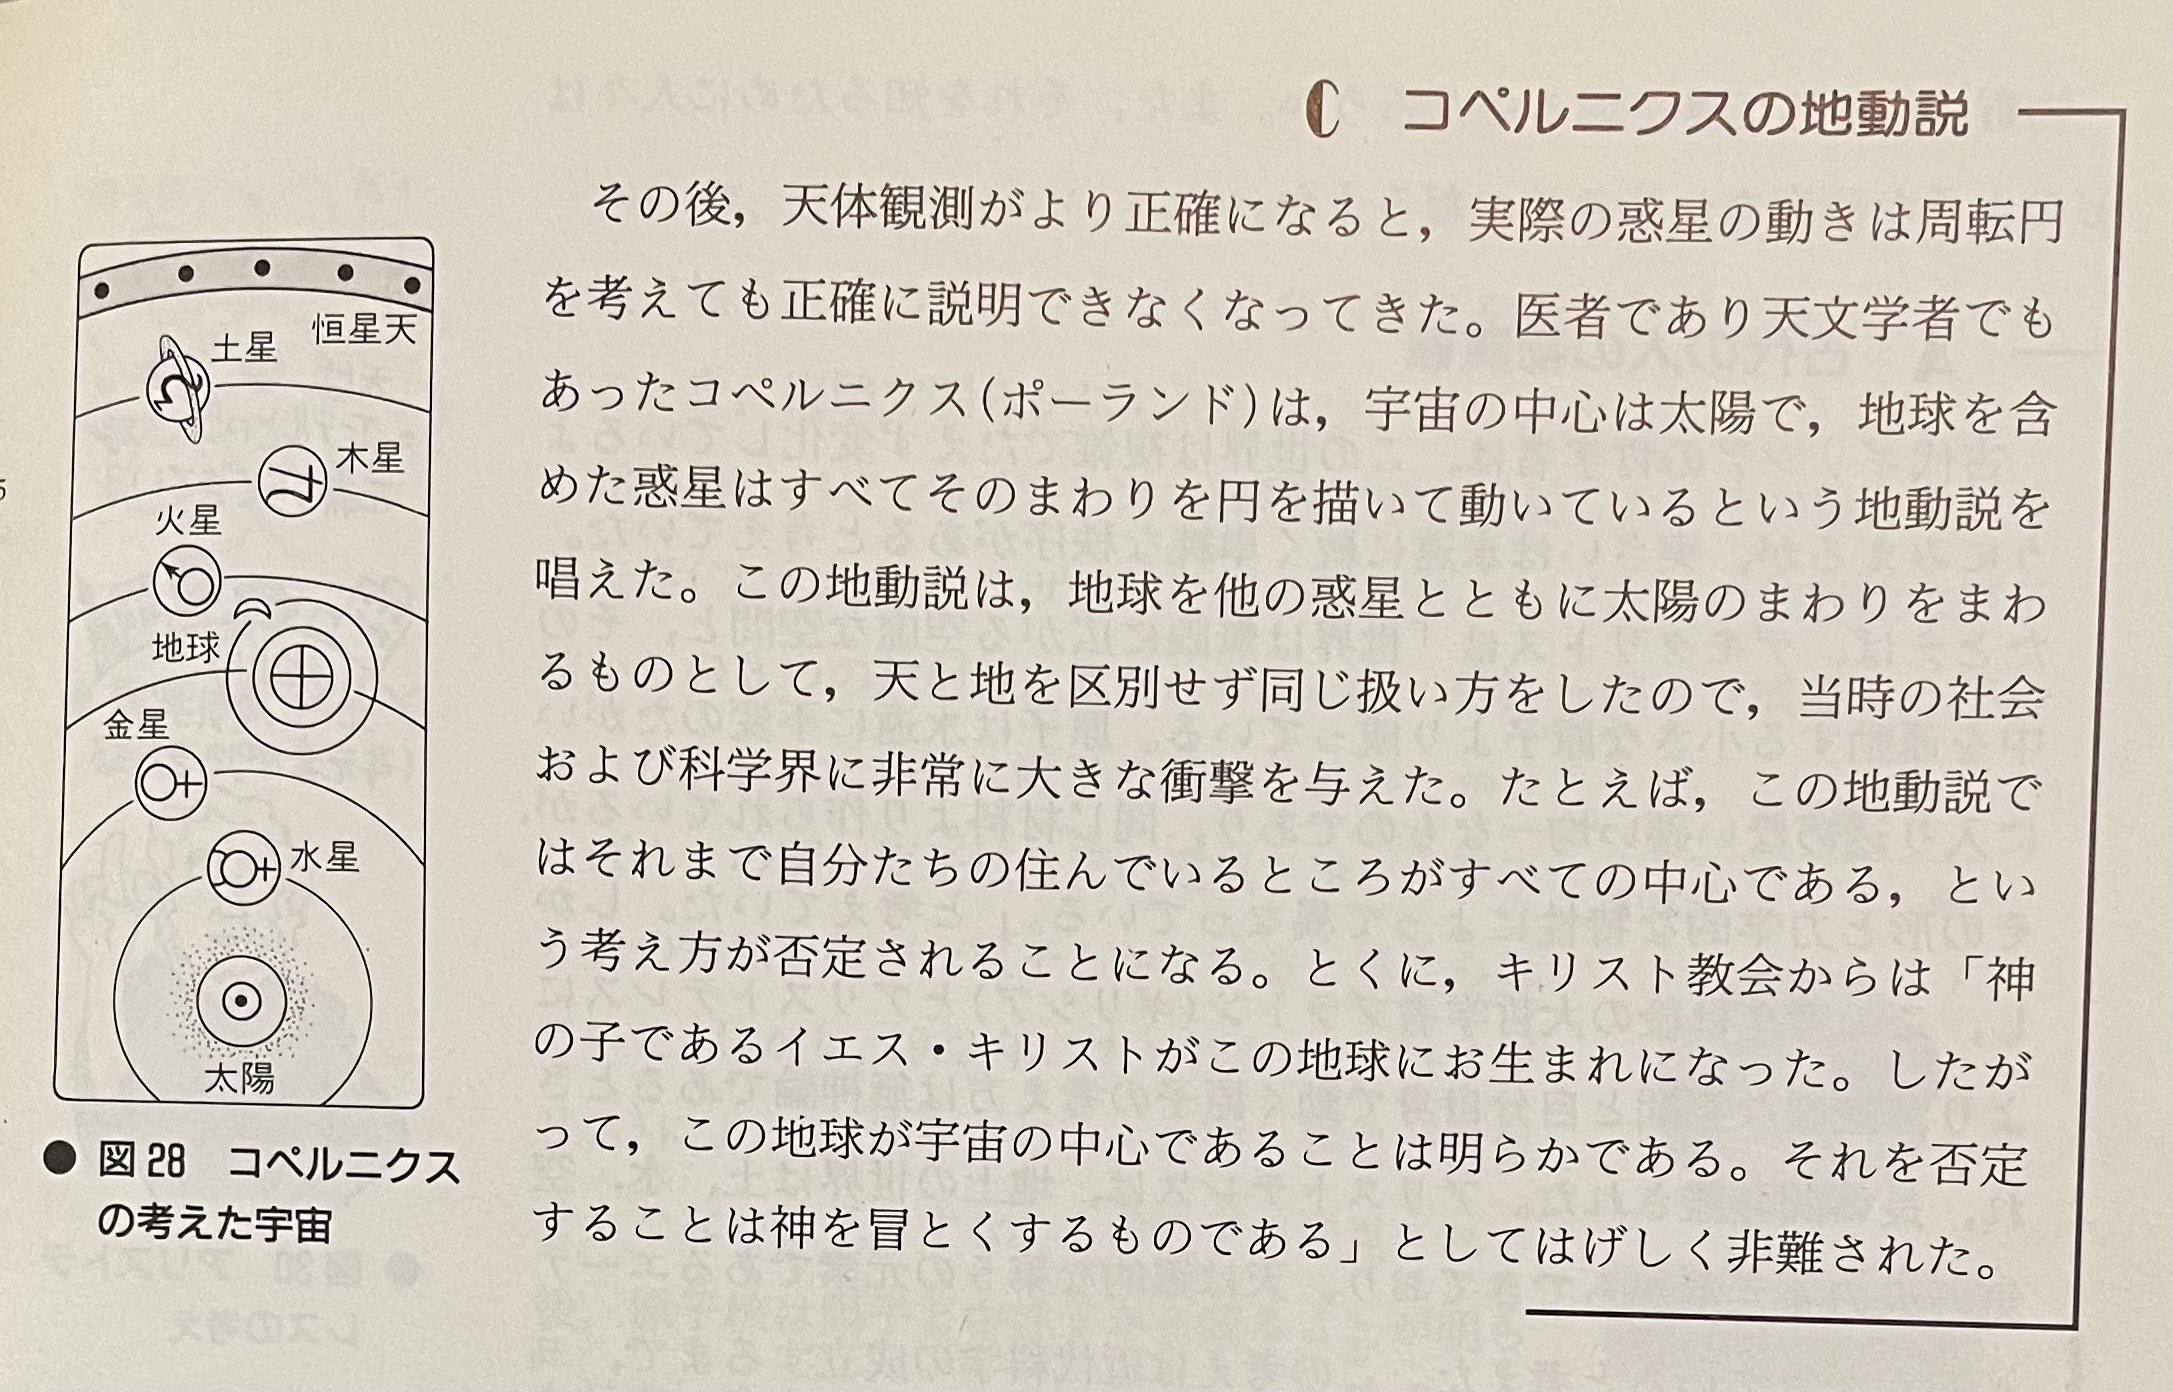 C コペルニクスの地動説
その後，天体観測がより正確になると，実際の惑星の動きは周転円
を考えても正確に説明できなくなってきた。医者であり天文学者でも
あったコペルニクス(ポーランド)は，宇宙の中心は太陽で，地球を含
めた惑星はすべてそのまわりを円を描いて動いているという地動説を
唱えた。この地動説は，地球を他の惑星とともに太陽のまわりをまわ
るものとして，天と地を区別せず同じ扱い方をしたので，当時の社会
および科学界に非常に大きな衝撃を与えた。たとえば，この地動説で
はそれまで自分たちの住んでいるところがすべての中心である，とい
う考え方が否定されることになる。とくに，キリスト教会からは「神
の子であるイエス・キリストがこの地球にお生まれになった。したが
って，この地球が宇宙の中心であることは明らかである。それを否定
することは神を冒とくするものである」としてはげしく非難された。
恒星天
土星
木星
火星
地球
金星
水星
太陽
● 図28 コペルニクス
の考えた宇宙
5